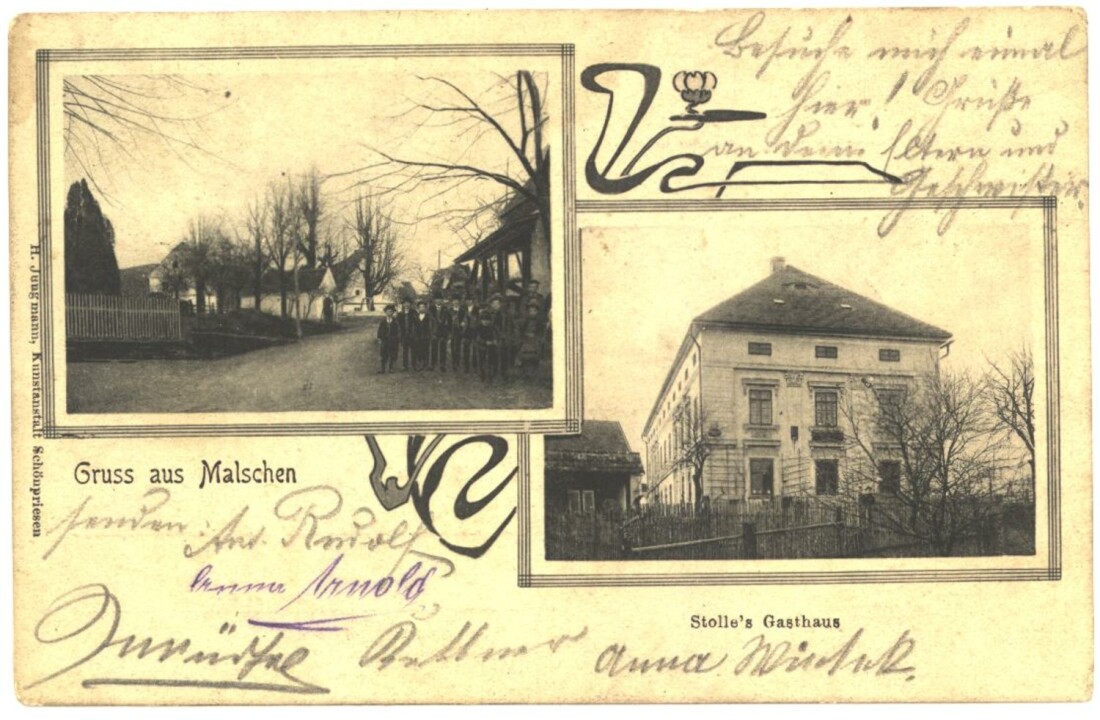 Besuche mich einmal
hier! Grüße
an deine Eltern und
Geschwister
H. Jungmann, Kunstanstalt Schönpriesen
Gruss aus Malschen
senden Ant. Rudolf
Anna Arnold
Stolle's Gasthaus
Kettner Anna